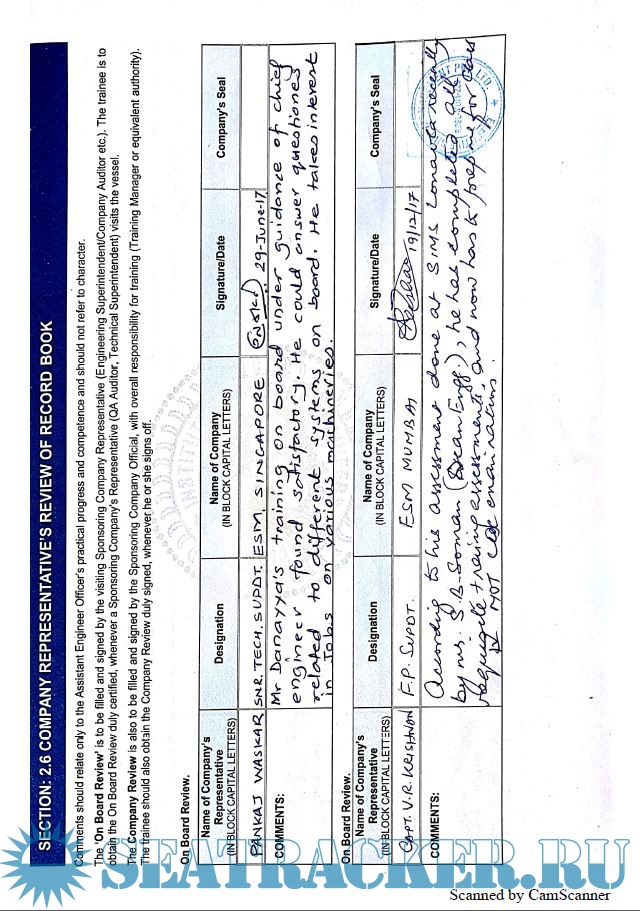 SECTION: 2.6 COMPANY REPRESENTATIVE'S REVIEW OF RECORD BOOK
Comments should relate only to the Assistant Engineer Officer's practical progress and competence and should not refer to character.
The 'On Board Review' is to be filled and signed by the visiting Sponsoring Company Representative (Engineering Superintendent/Company Auditor etc.). The trainee is to
obtain the On Board Review duly certified, whenever a Sponsoring Company's Representative (QA Auditor, Technical Superintendent) visits the vessel.
The Company Review is also to be filled and signed by the Sponsoring Company Official, with overall responsibility for training (Training Manager or equivalent authority).
The trainee should also obtain the Company Review duly signed, whenever he or she signs off.
On Board Review.
Name of Company's Representative (IN BLOCK CAPITAL LETTERS) Designation Name of Company (IN BLOCK CAPITAL LETTERS) Signature/Date Company's Seal
PANKAJ WASKAR SNR. TECH. SUPDT. ESM, SINGAPORE 29-June-17
COMMENTS: Mr Danayya's training on board under guidance of chief
engineer found satisfactory. He could answer questiones
related to different systems on board. He takes interest
in Jobs on various machineries.
On Board Review.
Name of Company's Representative (IN BLOCK CAPITAL LETTERS) Designation Name of Company (IN BLOCK CAPITAL LETTERS) Signature/Date Company's Seal
CAPT. V.R. KRISHNAN F.P. SUPDT. ESM MUMBAI 19/12/17
COMMENTS: According to his assessment done at SIMS Lonavla recently
by mr. S. B. Soman (Dean Engg.), he has completed all
requisite training assessments, and now has to prepare for class
IV MOT examinations.
SEATRACKER.RU
Scanned by CamScanner